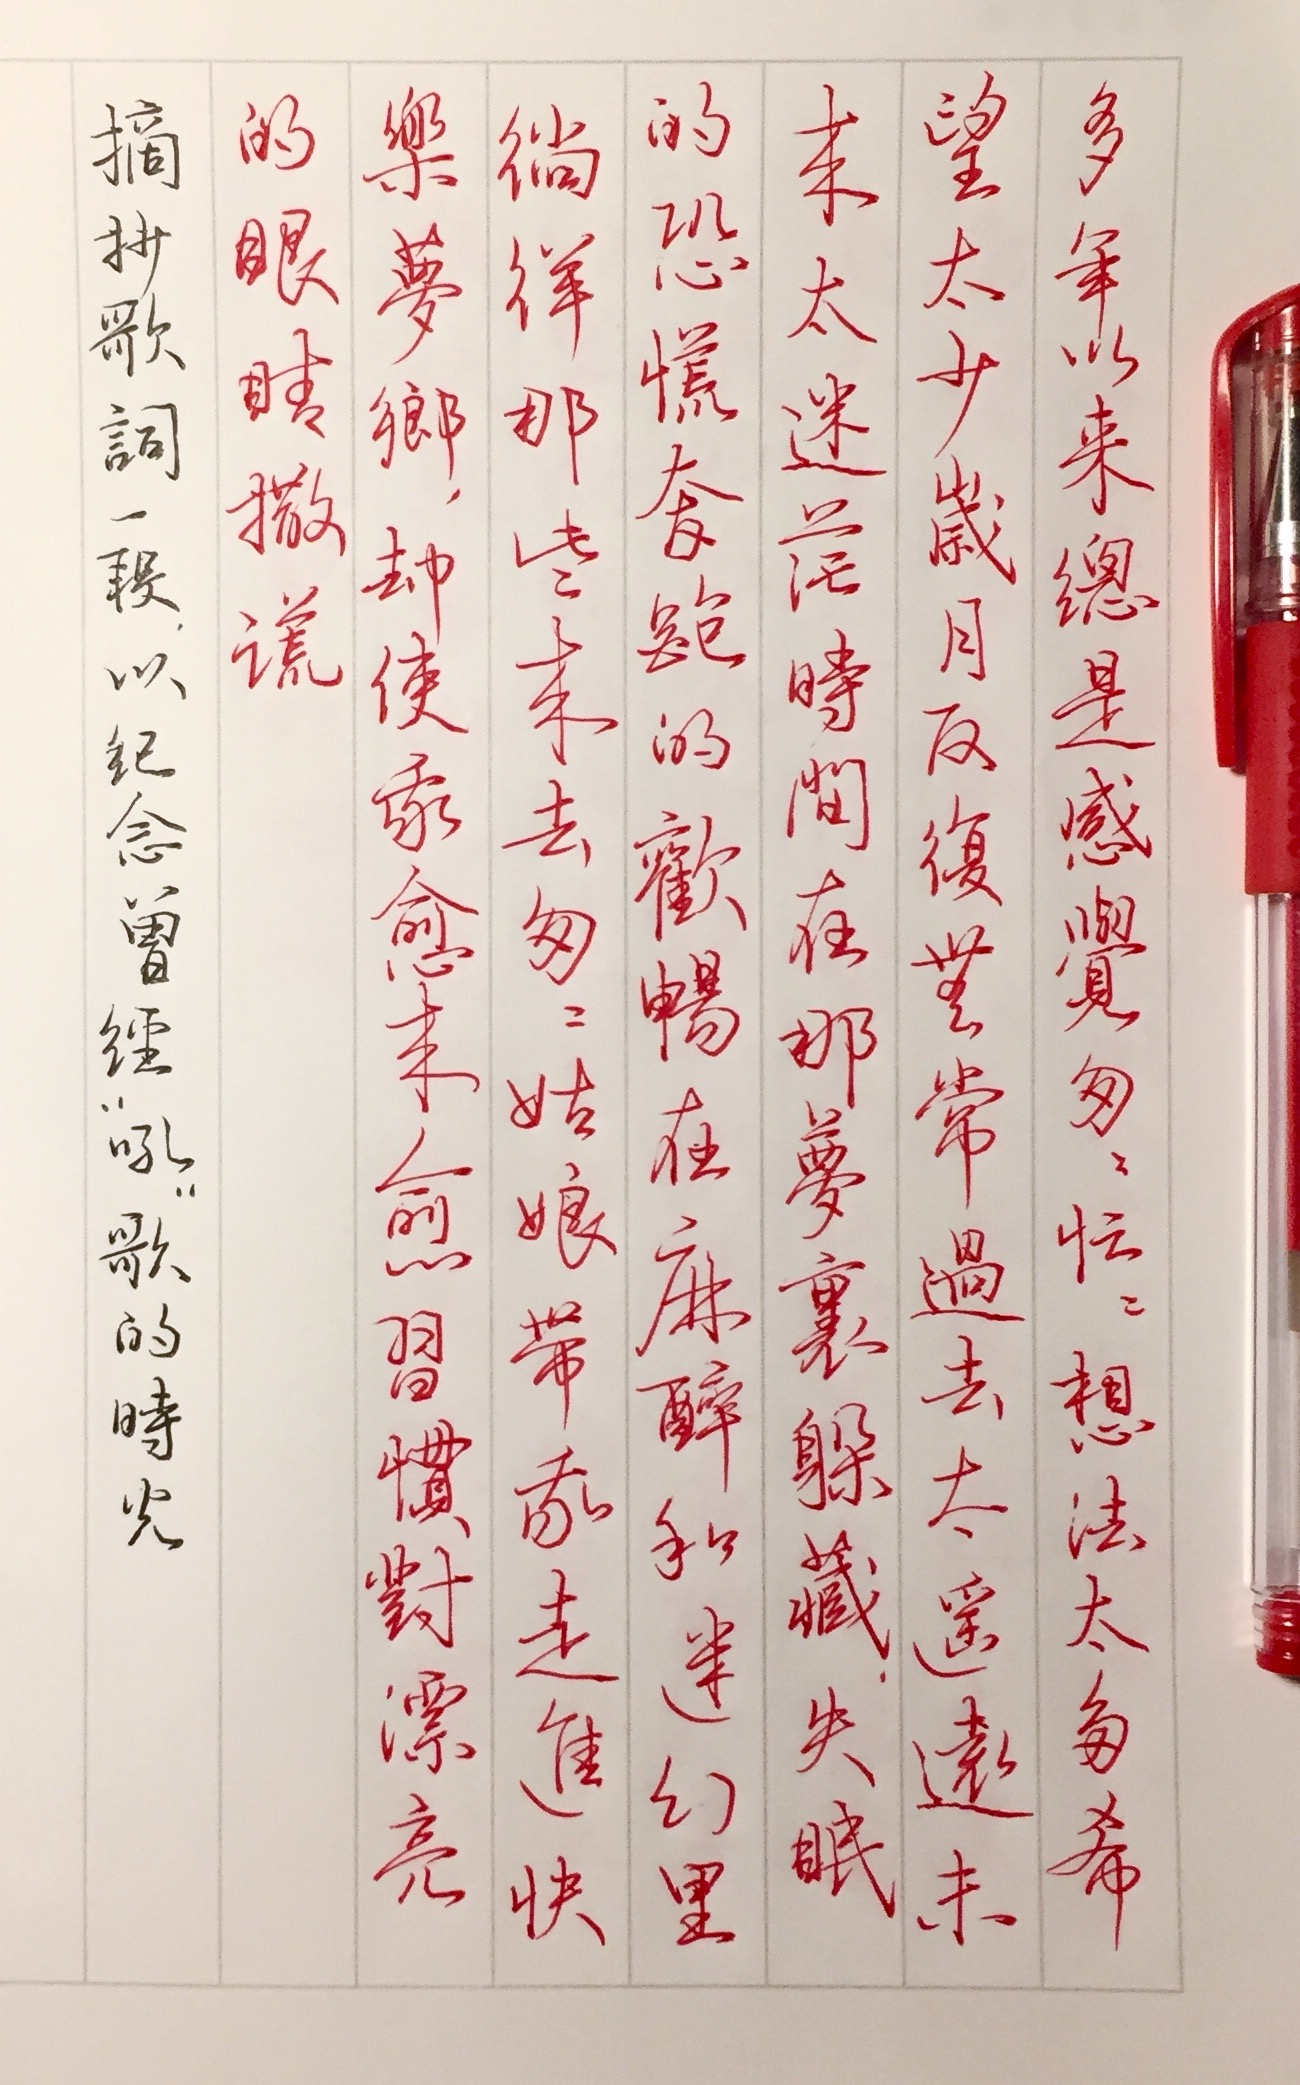 多年以来總是感覺匆〻忙〻想法太多希
望太少歲月反復無常過去太遥遠未
来太迷茫時間在那夢裏躲藏，失眠
的恐慌奔跑的歡暢在麻醉和迷幻里
徜徉那些来去匆〻姑娘带我走進快
樂夢鄉，却使我愈来愈習慣對漂亮
的眼睛撒謊
摘抄歌詞一段，以紀念曾經"吼"歌的時光